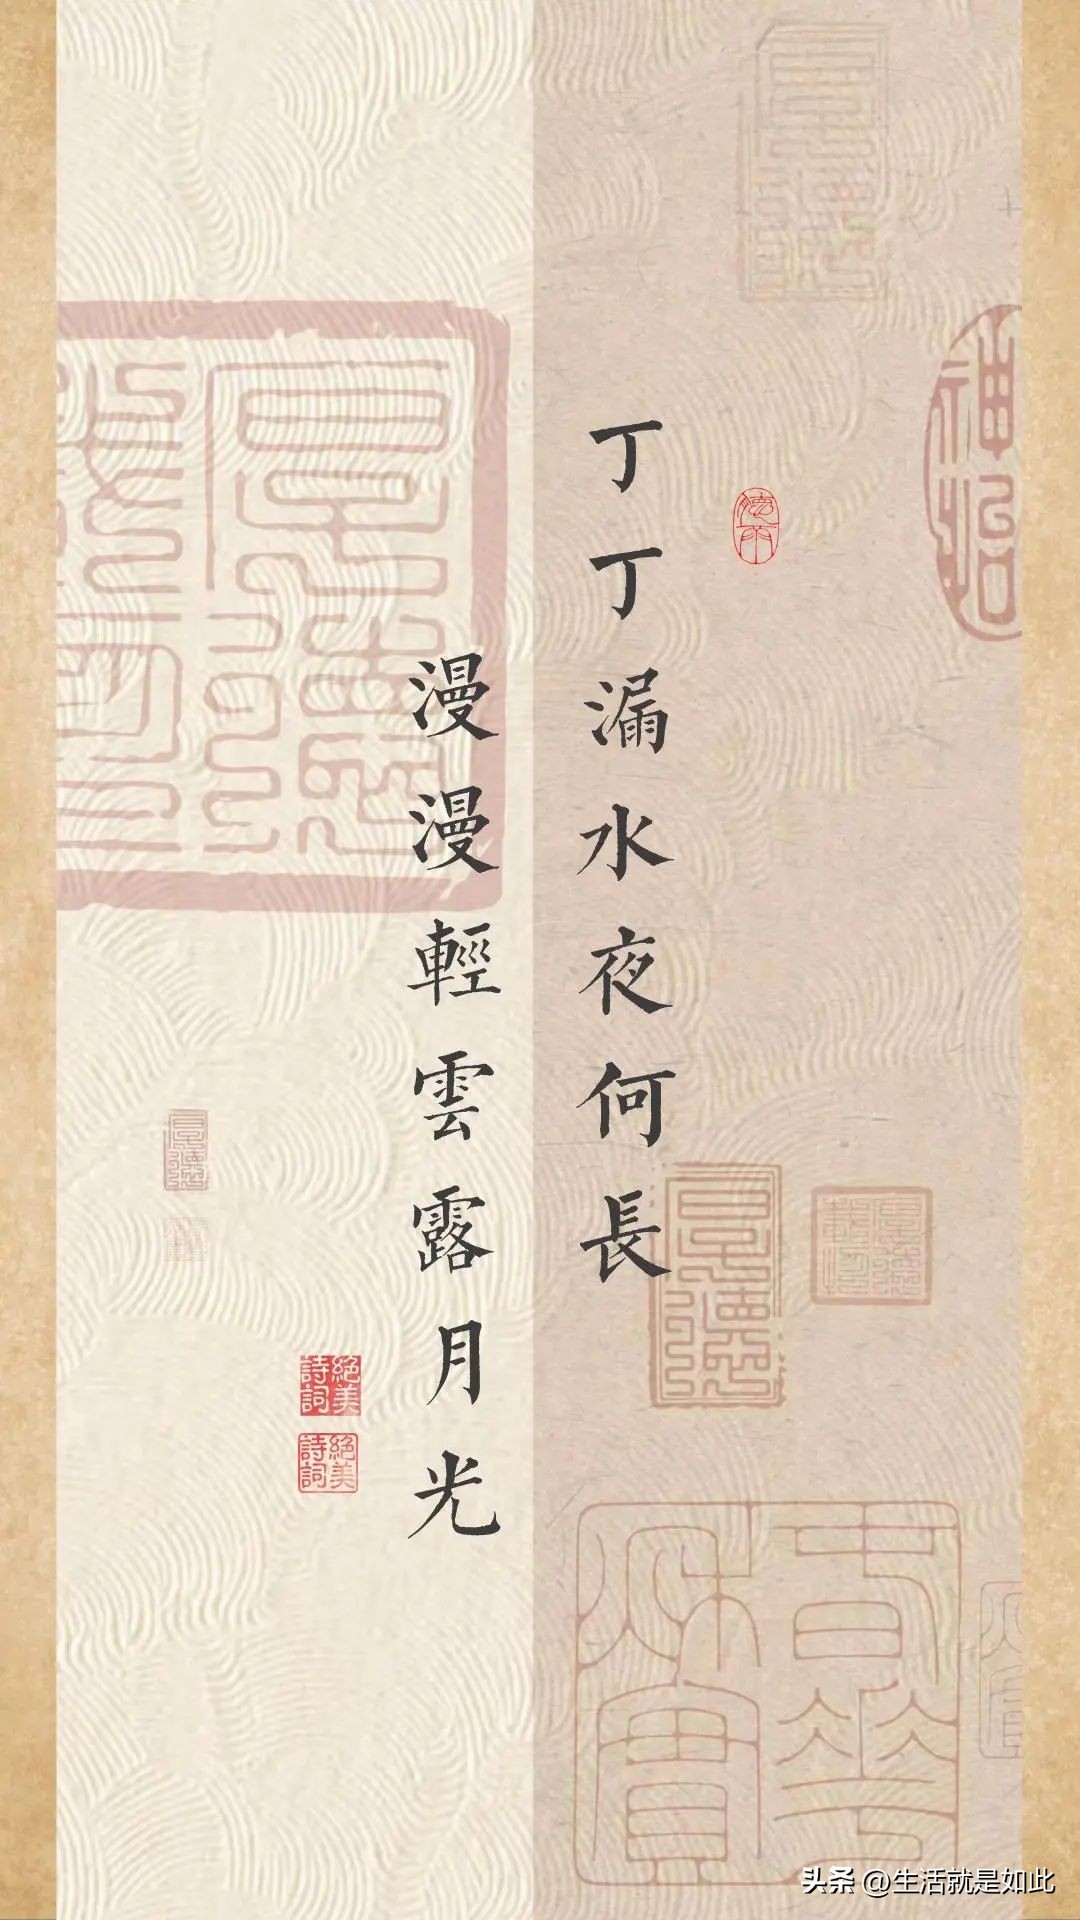 丁丁漏水夜何長
漫漫輕雲露月光
聽雨
絕美詩詞
絕美詩詞
春華秋實
头条 @生活就是如此